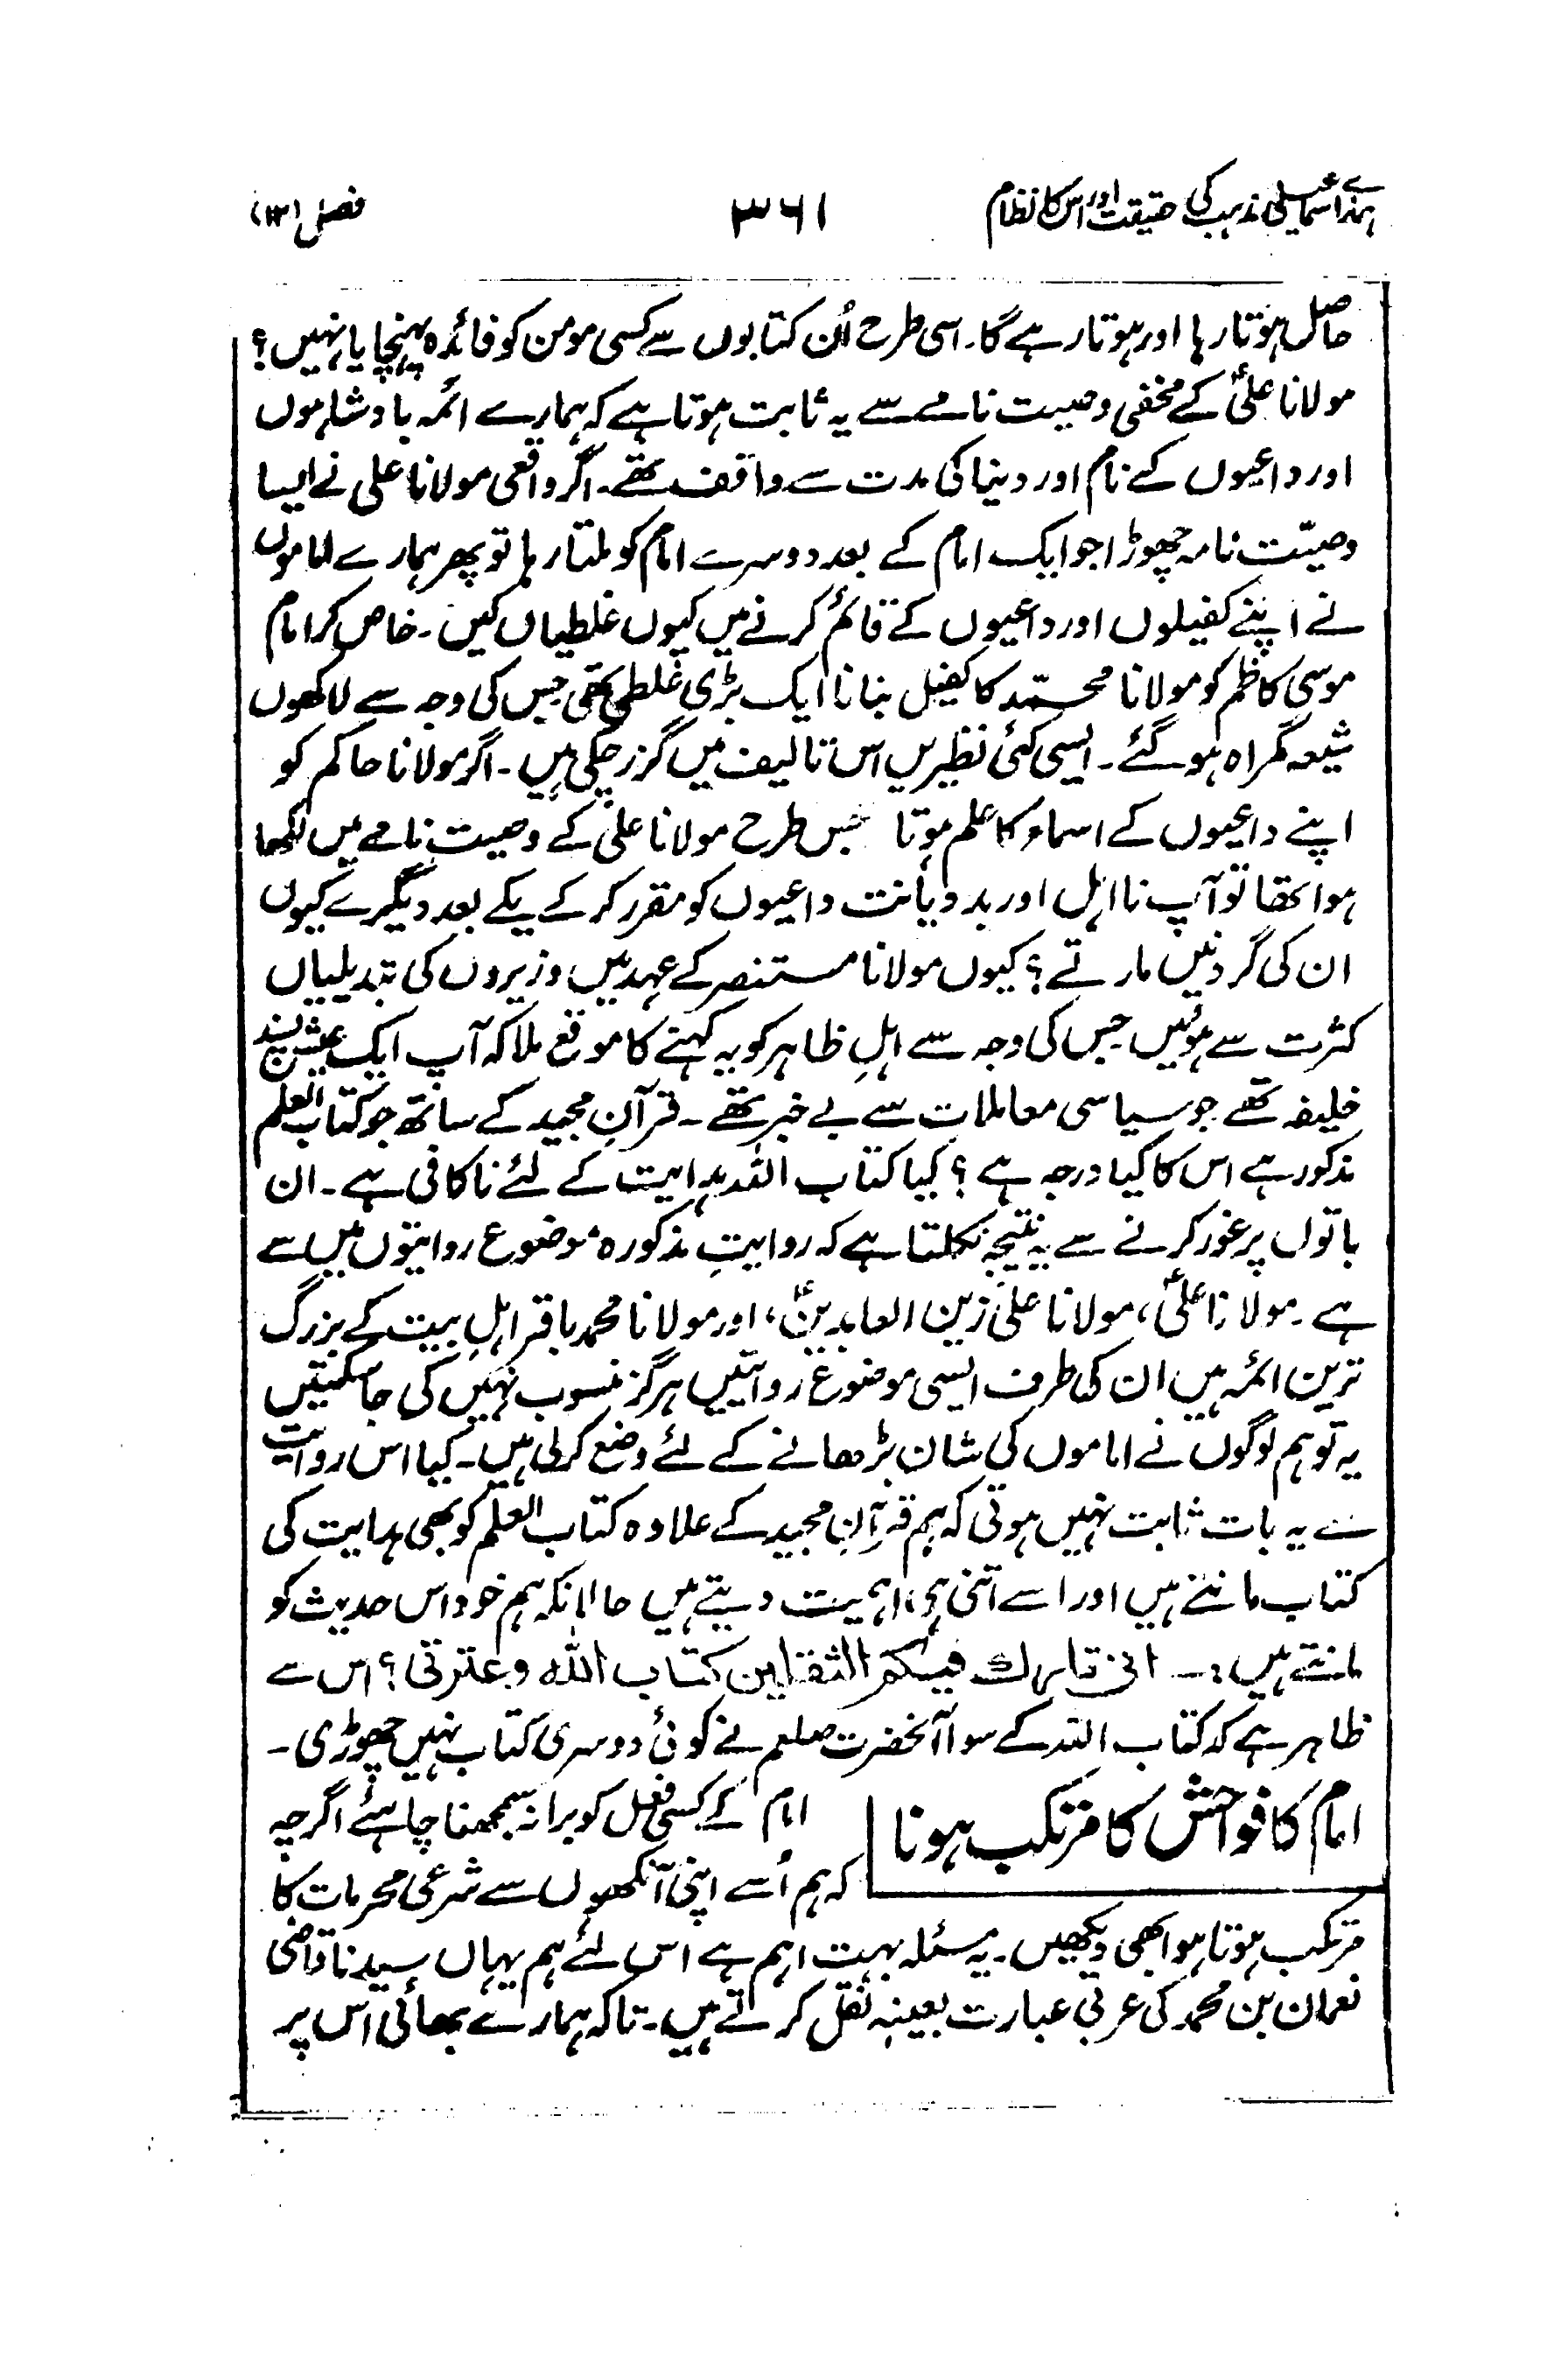 ہمارے اسماعیلی مذہب کی حقیقت اور اس کا نظام ۳۶۱ فصل (۱۳)
حاصل ہوتا رہا اور ہوتا رہے گا۔ اسی طرح اُن کتابوں سے کسی مومن کو فائدہ پہنچا یا نہیں؟
مولانا علیؑ کے مخفی وصیت نامے سے یہ ثابت ہوتا ہے کہ ہمارے ائمہ بادشاہوں
اور داعیوں کے نام اور دنیا کی مدت سے واقف تھے۔ اگر واقعی مولانا علی نے ایسا
وصیّت نامہ چھوڑا جو ایک امام کے بعد دوسرے امام کو ملتا رہا تو پھر ہمارے اماموں
نے اپنے کفیلوں اور داعیوں کے قائم کرنے میں کیوں غلطیاں کیں۔ خاص کر امام
موسیٰ کاظم کو مولانا محمّد کا کفیل بنانا ایک بڑی غلطی تھی جس کی وجہ سے لاکھوں
شیعہ گمراہ ہو گئے۔ ایسی کئی نظیریں اس تالیف میں گزر چکی ہیں۔ اگر مولانا حاکم کو
اپنے داعیوں کے اسماء کا علم ہوتا جس طرح مولانا علیؑ کے وصیت نامے میں لکھا
ہوا تھا تو آپ نا اہل اور بد دیانت داعیوں کو مقرر کر کے یکے بعد دیگرے کیوں
ان کی گردنیں مارتے؟ کیوں مولانا مستنصر کے عہد میں وزیروں کی تبدیلیاں
کثرت سے ہوئیں جس کی وجہ سے اہلِ ظاہر کو یہ کہنے کا موقع ملا کہ آپ ایک عیش پسند
خلیفہ تھے جو سیاسی معاملات سے بے خبر تھے۔ قرآنِ مجید کے ساتھ جو کتاب العلم
مذکور ہے اس کا کیا درجہ ہے؟ کیا کتاب اللہ ہدایت کے لئے ناکافی ہے۔ ان
باتوں پر غور کرنے سے یہ نتیجہ نکلتا ہے کہ روایتِ مذکورہ موضوع روایتوں میں سے
ہے۔ مولانا علیؑ، مولانا علی زین العابدینؑ، اور مولانا محمد باقر اہلِ بیت کے بزرگ
ترین ائمہ ہیں ان کی طرف ایسی موضوع روایتیں ہرگز منسوب نہیں کی جا سکتیں
یہ تو ہم لوگوں نے اماموں کی شان بڑھانے کے لئے وضع کرلی ہیں۔ کیا اس روایت
سے یہ بات ثابت نہیں ہوتی کہ ہم قرآنِ مجید کے علاوہ کتاب العلم کو بھی ہدایت کی
کتاب مانتے ہیں اور اسے اتنی ہی اہمیت دیتے ہیں حالانکہ ہم خود اس حدیث کو
مانتے ہیں:۔ انی تارك فیکم الثقلین کتاب اللہ وعترتی؟ اس سے
ظاہر ہے کہ کتاب اللہ کے سوا آنحضرت صلعم نے کوئی دوسری کتاب نہیں چھوڑی۔
امام کا فواحش کا مرتکب ہونا
امام کے کسی فعل کو برا نہ سمجھنا چاہئے اگرچہ
کہ ہم اُسے اپنی آنکھوں سے شرعی محرمات کا
مرتکب ہوتا ہوا بھی دیکھیں۔ یہ مسئلہ بہت اہم ہے اس لئے ہم یہاں سیدنا قاضی
نعمان بن محمد کی عربی عبارت بعینہ نقل کرتے ہیں۔ تاکہ ہمارے بھائی اس پر